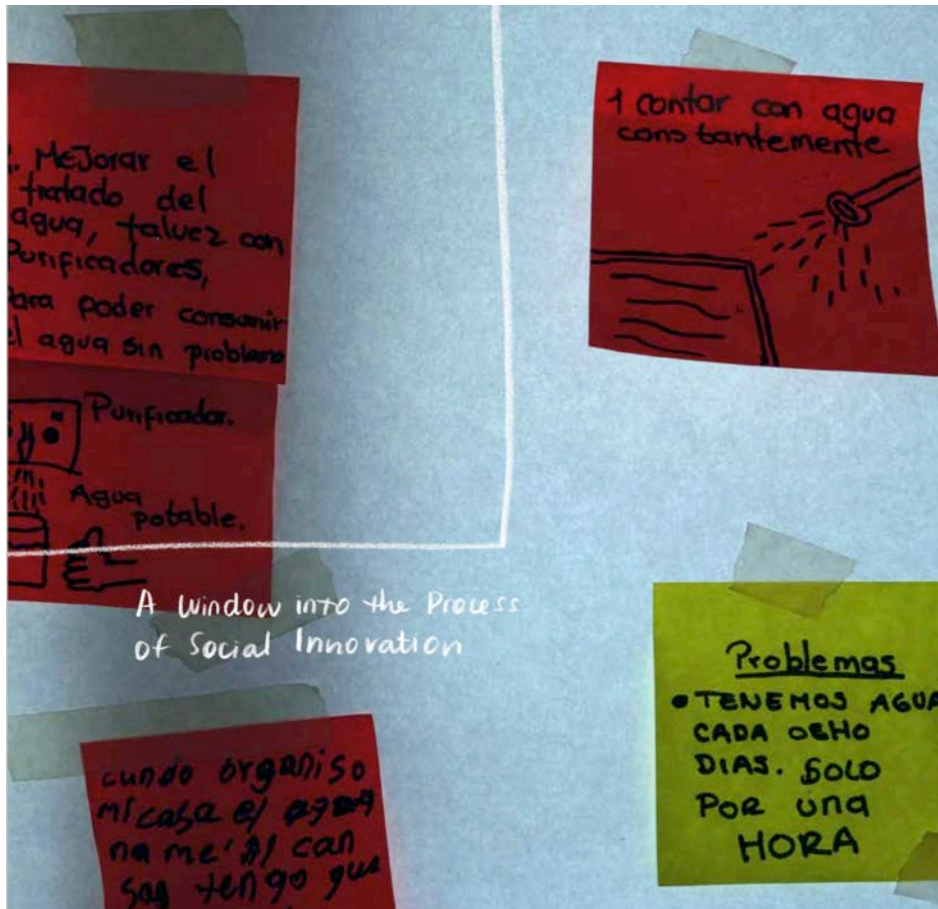 Mejorar el
tratado del
agua, talvez con
Purificadores,
para poder consumir
el agua sin problema
Purificador.
Agua
potable.
1 contar con agua
constantemente
A window into the Process
of Social Innovation
Problemas
• TENEMOS AGUA
CADA OCHO
DIAS. SOLO
POR una
HORA
cundo organiso
mi casa el agua
na me
tengo que